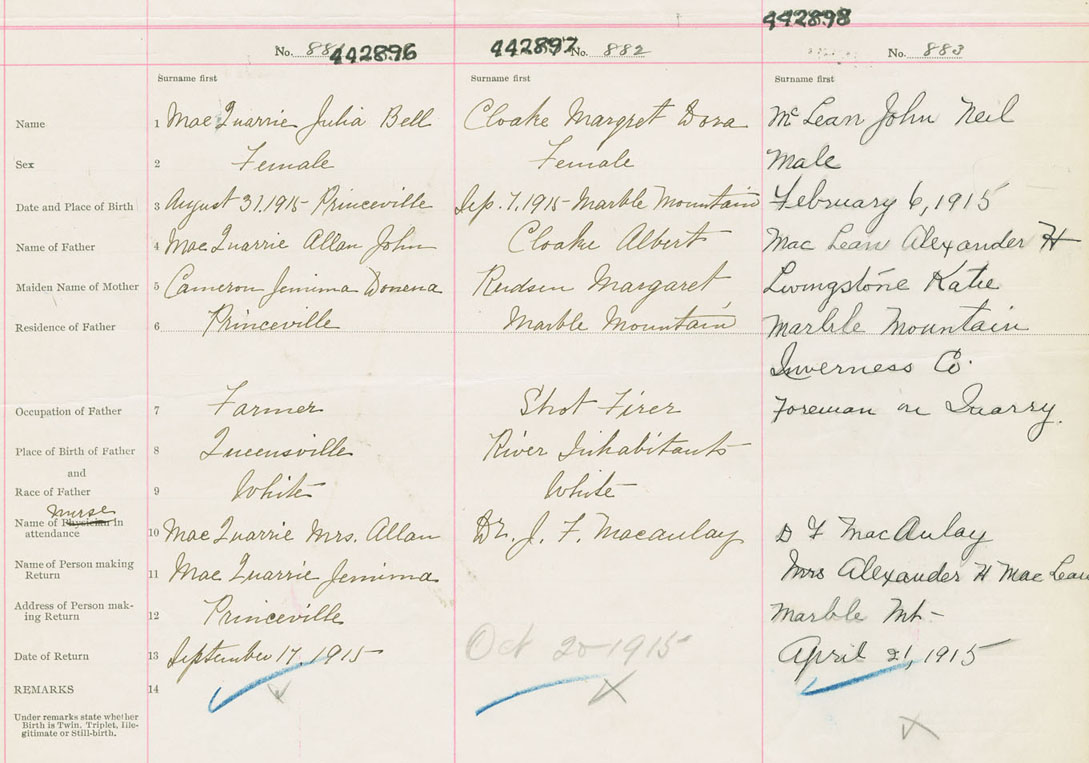 442898
No. 88 442896 442897 No. 882 No. 883
Surname first Surname first Surname first
Name 1 MacQuarrie Julia Bell Cloake Margret Dora McLean John Neil
Sex 2 Female Female Male
Date and Place of Birth 3 August 31.1915 Princeville Sep. 7.1915 Marble Mountain February 6, 1915
Name of Father 4 MacQuarrie Allan John Cloake Albert MacLean Alexander H
Maiden Name of Mother 5 Cameron Jemima Donena Margaret Livingstone Katie
Residence of Father 6 Princeville Marble Mountain Marble Mountain
Inverness Co.
Occupation of Father 7 Farmer Shot Firer Foreman in Quarry.
Place of Birth of Father 8 Queensville River Inhabitants
and
Race of Father 9 White White
Nurse
Name of Physician in
attendance 10 MacQuarrie Mrs. Allan Dr. J. F. Macaulay D F MacAulay
Name of Person making
Return 11 MacQuarrie Jemima Mrs Alexander H MacLean
Address of Person mak-
ing Return 12 Princeville Marble Mt-
Date of Return 13 September 17, 1915 Oct 20 1915 April 21, 1915
REMARKS 14
Under remarks state whether
Birth is Twin, Triplet, Ille-
gitimate or Still-birth.